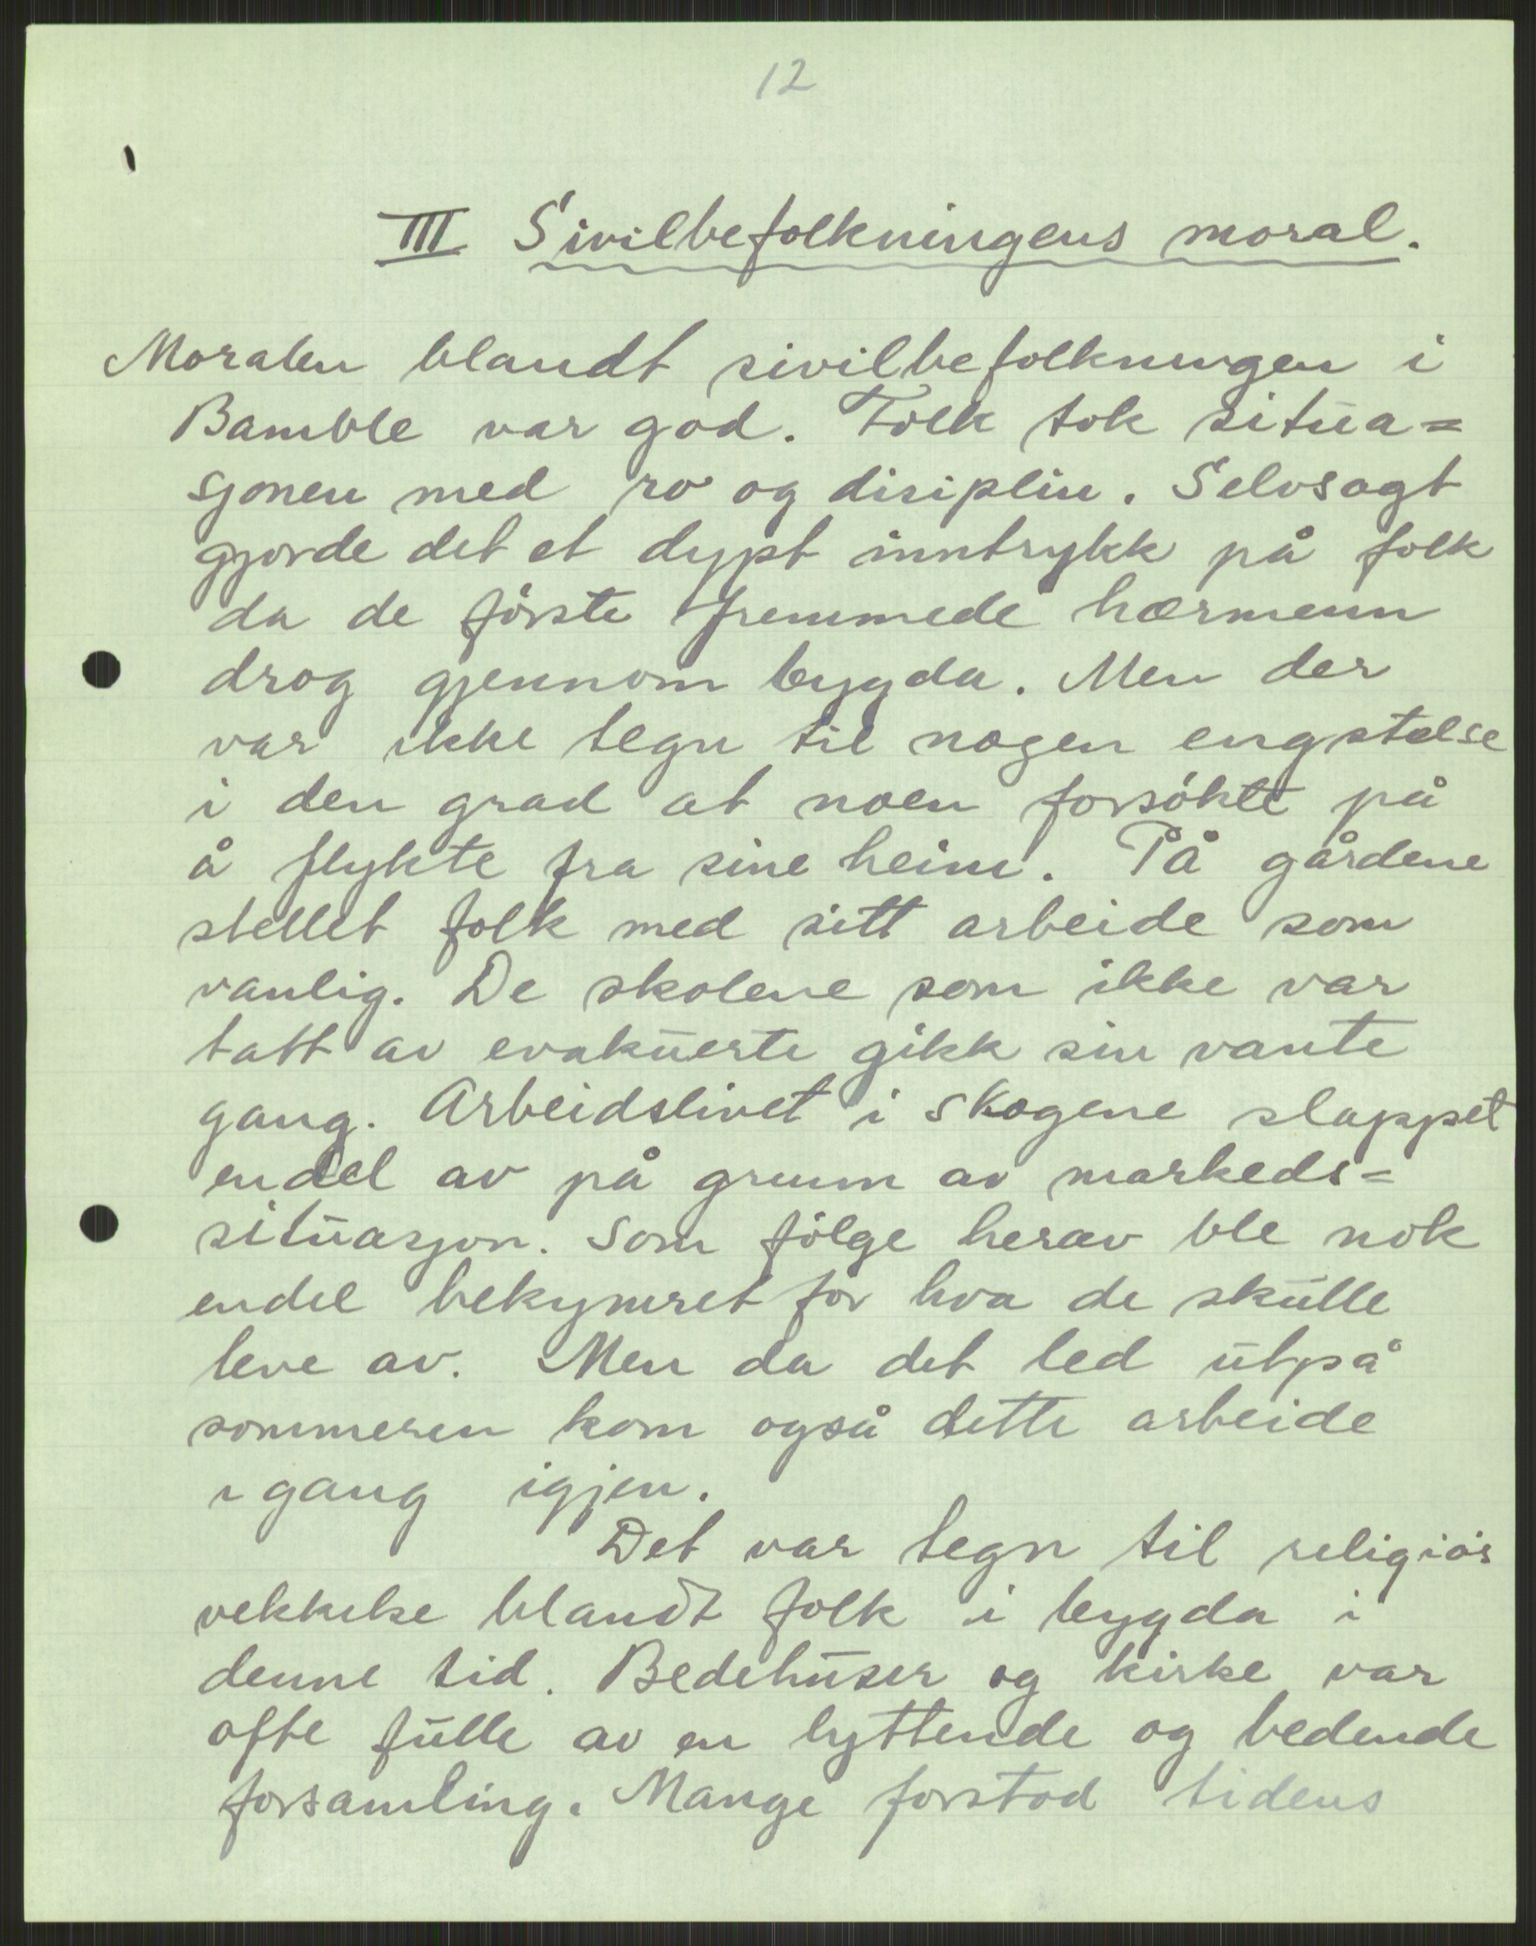 12
III Sivilbefolkningens moral.
Moralen blandt sivilbefolkningen i
Bamble var god. Folk tok situa=
sjonen med ro og disiplin. Selvsagt
gjorde det et dypt inntrykk på folk
da de förste fremmede hærmenn
drog gjennom bygda. Men der
var ikke tegn til nogen engstelse
i den grad at noen forsökte på
å flykte fra sine heim. På gårdene
stellet folk med sitt arbeide som
vanlig. De skolene som ikke var
tatt av evakuerte gikk sin vante
gang. Arbeidslivet i skogene slappet
endel av på grunn av markeds=
situasjon. Som fölge herav ble nok
endel bekymret for hva de skulle
leve av. Men da det led utpå
sommeren kom også dette arbeide
i gang igjen.
Det var tegn til religiös
vekkelse blandt folk i bygda i
denne tid. Bedehuser og kirke var
ofte fulle av en lyttende og bedende
forsamling. Mange forstod tidens